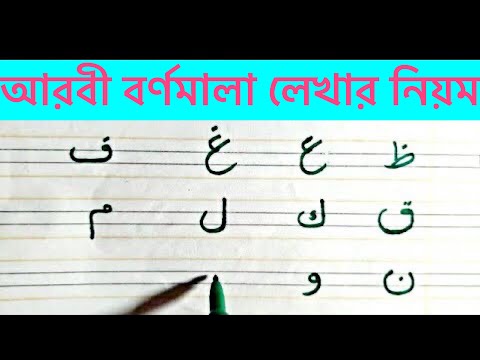 আরবী বর্ণমালা লেখার নিয়ম
ظ ع غ ف
ق ك ل م
ن و